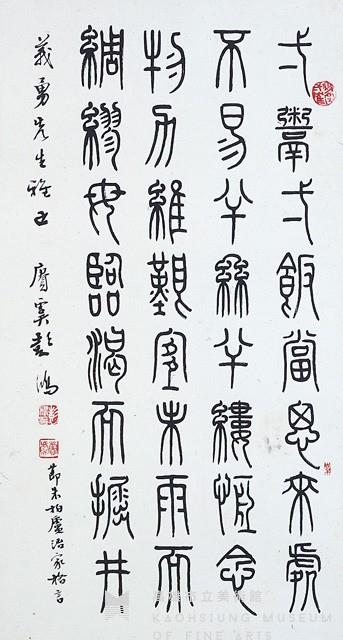 弌鬻弌飯當思來處
不易半絲半縷恆念
物力維艱宜未雨而
綢繆毋臨渴而掘井
義勇先生雅正 賡虞彭鴻
節朱柏廬治家格言
高雄市立美術館
KAOHSIUNG MUSEUM
OF FINE ART